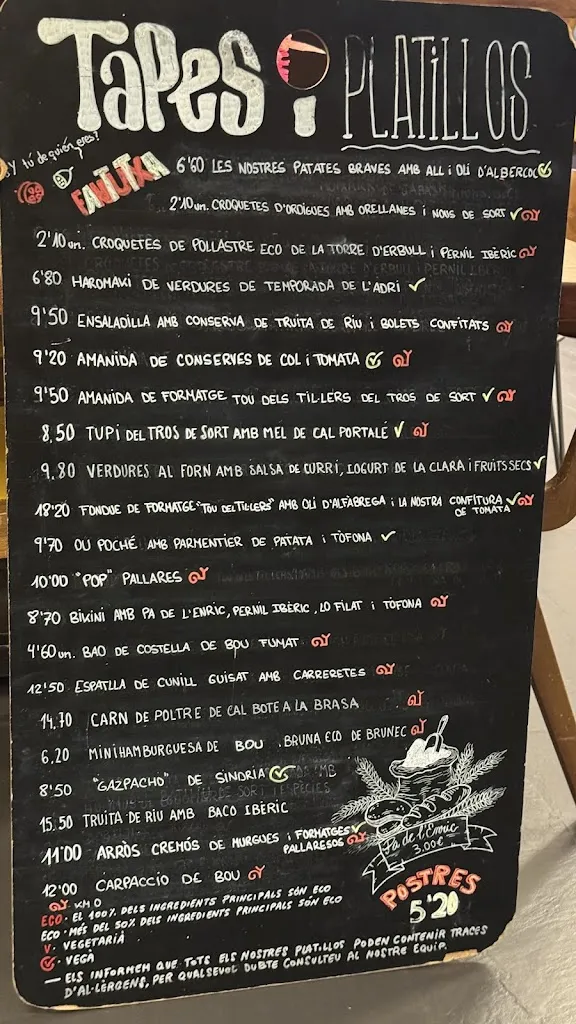 TAPES i PLATILLOS
Y tú de quién eres?
FAUTXA
6'60 LES NOSTRES PATATES BRAVES AMB ALL i OLI D'ALBERCOC
2'10un. CROQUETES D'ORDIGUES AMB ORELLANES i NOUS DE SORT
2'10un. CROQUETES DE POLLASTRE ECO DE LA TORRE D'ERBULL i PERNIL IBÈRIC
6'80 HAROMAKI DE VERDURES DE TEMPORADA DE L'ADRI
9'50 ENSALADILLA AMB CONSERVA DE TRUITA DE RIU i BOLETS CONFITATS
9'20 AMANIDA DE CONSERVES DE COL i TOMATA
9'50 AMANIDA DE FORMATGE TOU DELS TIL·LERS DEL TROS DE SORT
8,50 TUPÍ DEL TROS DE SORT AMB MEL DE CAL PORTALÉ
9,80 VERDURES AL FORN AMB SALSA DE CURRI, IOGURT DE LA CLARA i FRUITS SECS
18'20 FONDUE DE FORMATGE "TOU DEL TIL·LERS" AMB OLI D'ALFÀBREGA i LA NOSTRA CONFITURA
DE TOMATA
9'70 OU POCHÉ AMB PARMENTIER DE PATATA i TÒFONA
10'00 "POP" PALLARES
8'70 BIKINI AMB PA DE L'ENRIC, PERNIL IBÈRIC, LO FILAT i TÒFONA
4'60un. BAO DE COSTELLA DE BOU FUMAT
12'50 ESPATLLA DE CUNILL GUISAT AMB CARRERETES
14,70 CARN DE POLTRE DE CAL BOTE A LA BRASA
6,20 MINIHAMBURGUESA DE BOU . BRUNA ECO DE BRUNEC
8'50 "GAZPACHO" DE SINDRIA
15.50 TRUITA DE RIU AMB BACO IBERIC
11'00 ARRÒS CREMÓS DE MURGUES i FORMATGES
PALLARESOS
12'00 CARPACCIO DE BOU
Pa de l'Enric
3,00€
POSTRES
5'20
KM 0
ECO · EL 100% DELS INGREDIENTS PRINCIPALS SÓN ECO
ECO · MÉS DEL 50% DELS INGREDIENTS PRINCIPALS SÓN ECO
V · VEGETARIÀ
· VEGÀ
— ELS INFORMEM QUE TOTS ELS NOSTRES PLATILLOS PODEN CONTENIR TRACES
D'AL·LÈRGENS, PER QUALSEVOL DUBTE CONSULTEU AL NOSTRE EQUIP.